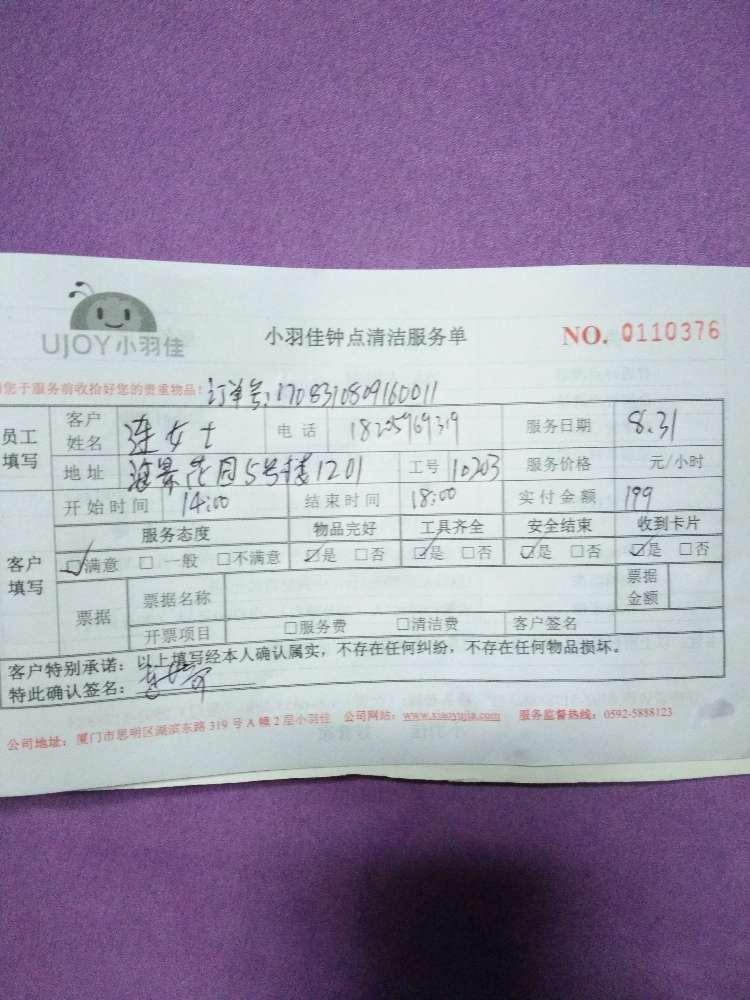 UJOY小羽佳
小羽佳钟点清洁服务单
NO. 0110376
您于服务前收拾好您的贵重物品!
订单号:1708310809160011
员工填写 客户姓名 连女士 电话 18205969319 服务日期 8.31
地址 海景花园5号楼1201 工号 10203 服务价格 元/小时
开始时间 14:00 结束时间 18:00 实付金额 199
客户填写 服务态度 物品完好 工具齐全 安全结束 收到卡片
☑满意 □一般 □不满意 ☑是 □否 ☑是 □否 ☑是 □否 ☑是 □否
票据 票据名称 票据金额
开票项目 □服务费 □清洁费 客户签名
客户特别承诺:以上填写经本人确认属实,不存在任何纠纷,不存在任何物品损坏。
特此确认签名:
公司地址:厦门市思明区湖滨东路319号A幢2层小羽佳 公司网站:www.xiaoyujia.com 服务监督热线:0592-5888123